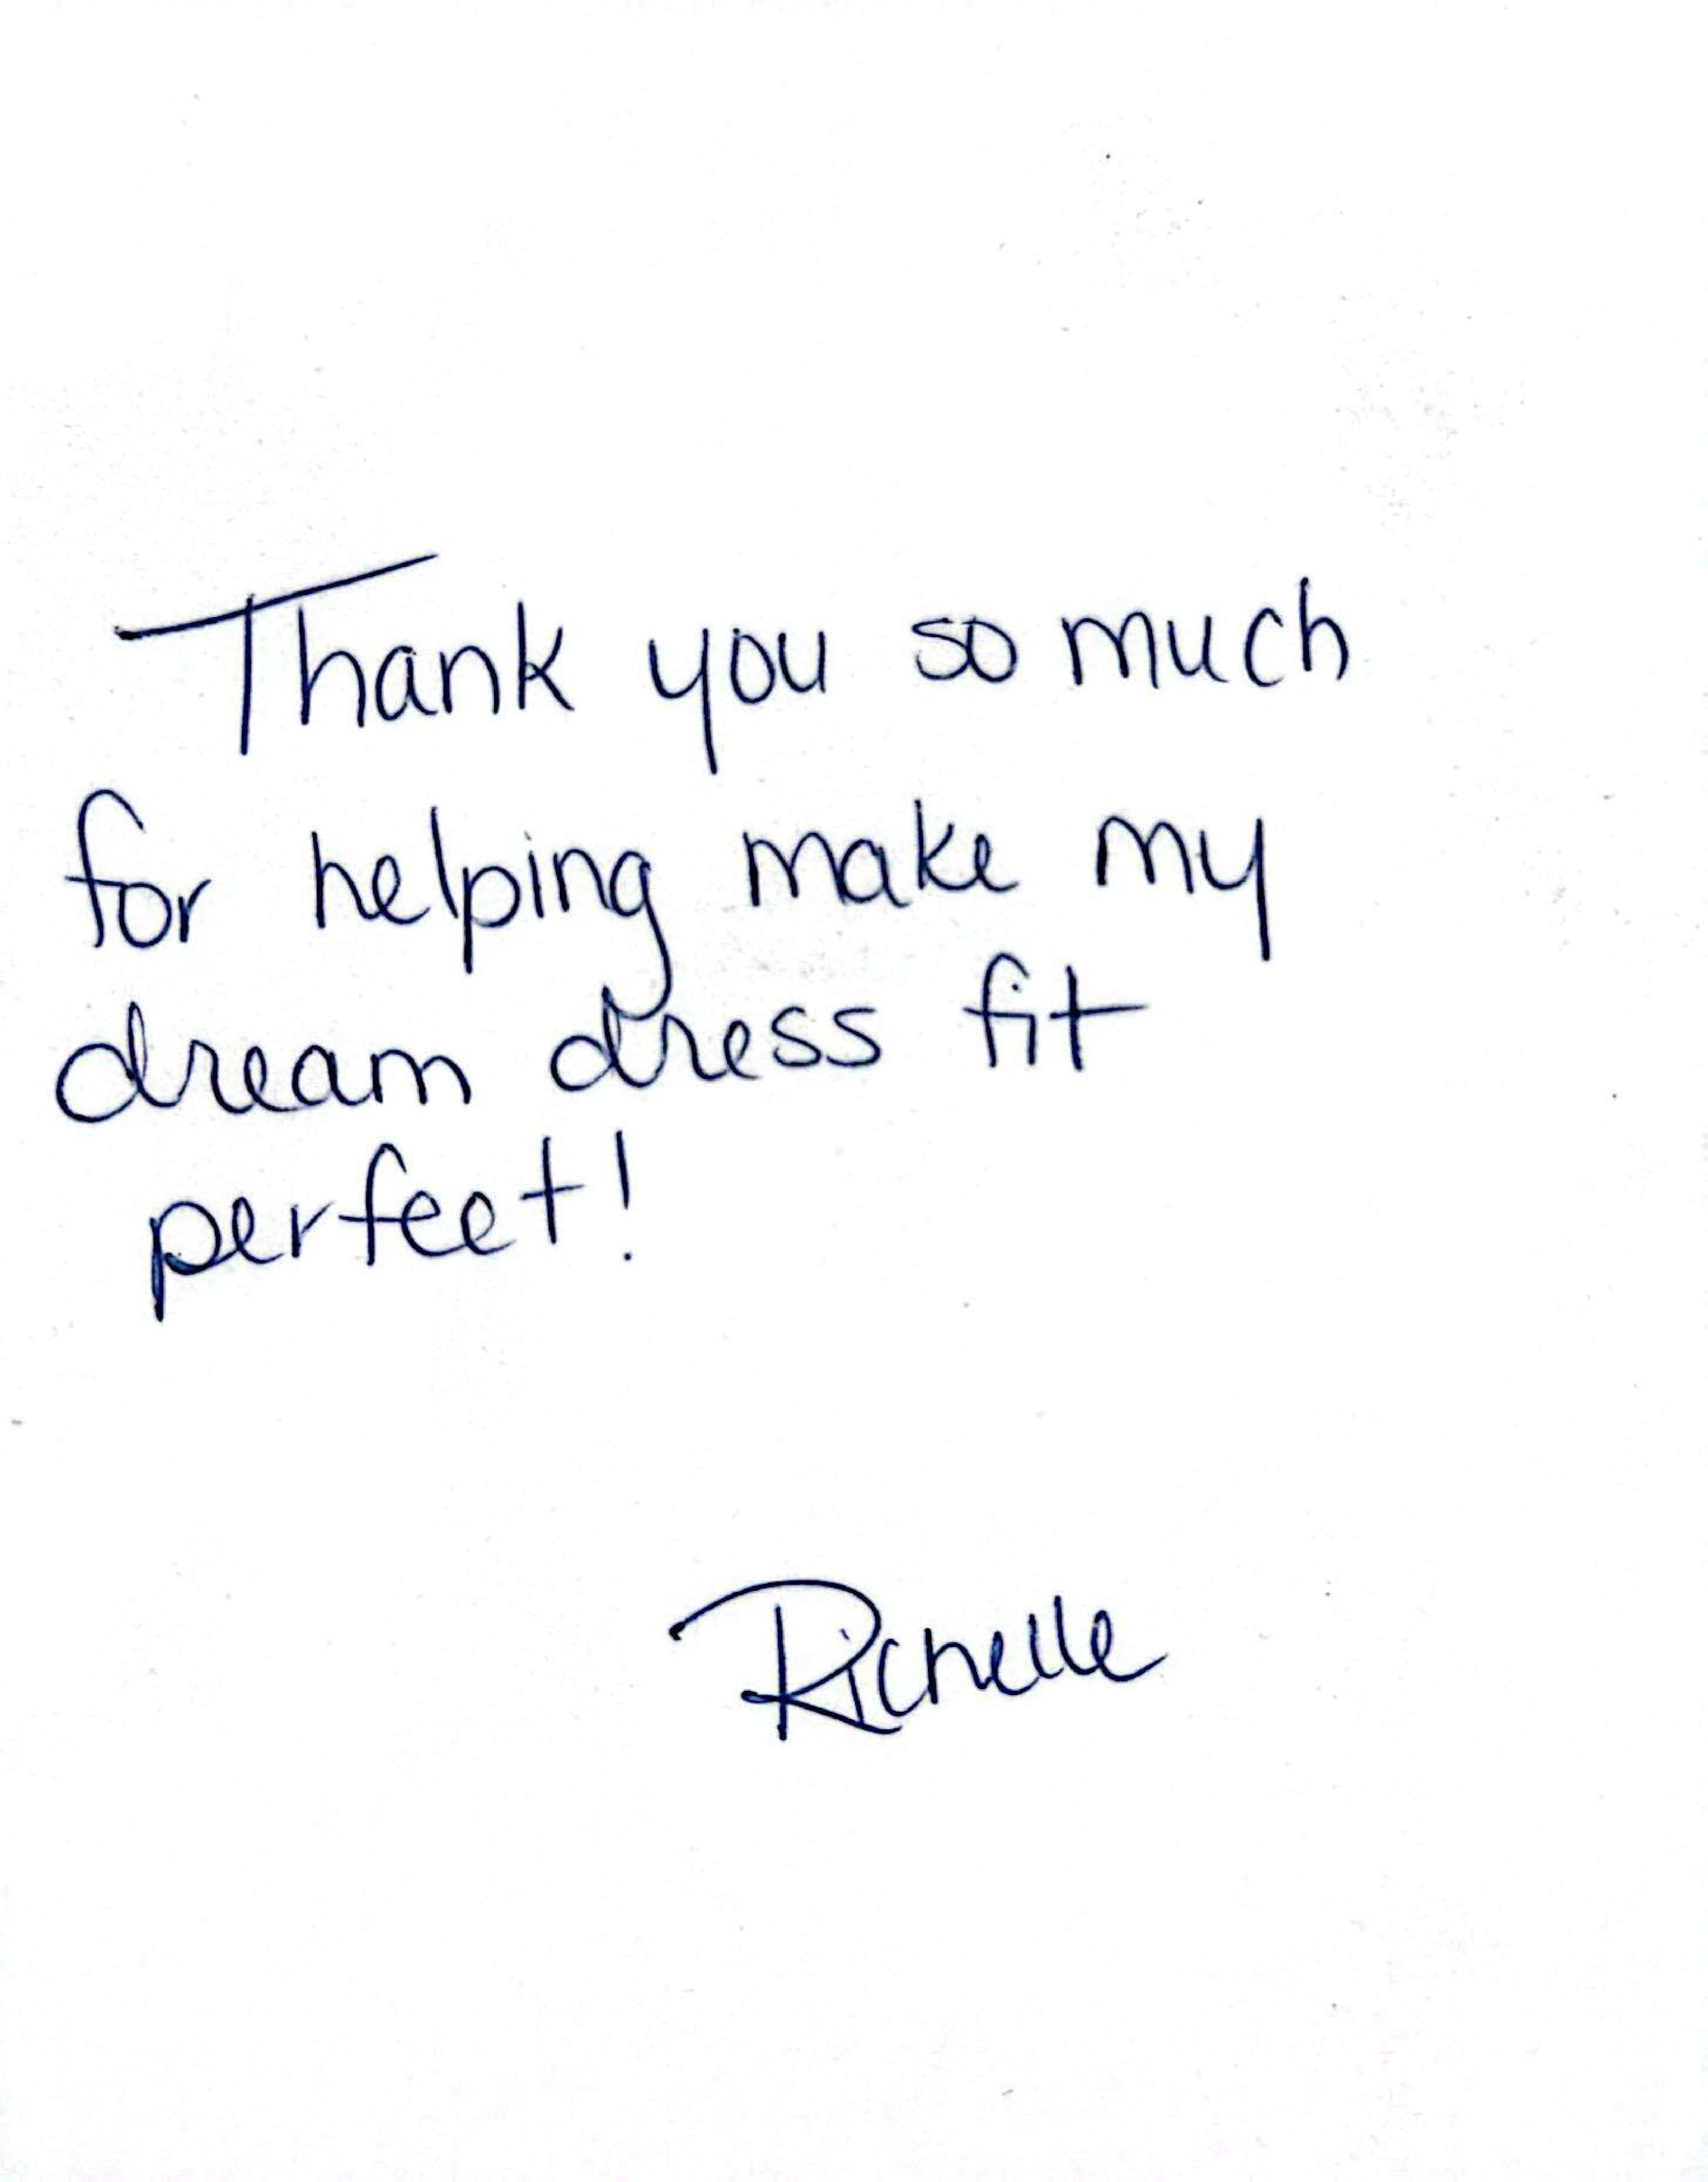 Thank you so much
for helping make my
dream dress fit
perfect!
Richelle